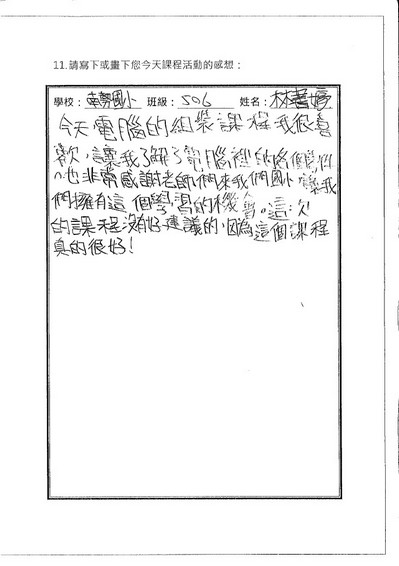 11.請寫下或畫下您今天課程活動的感想：
學校：東勢國小 班級：506 姓名：林書婷
今天電腦的組裝課程我很喜
歡，讓我了解了電腦裡的各個零件
，也非常感謝老師們來我們國小，讓我
們擁有這個學習的機會。這次
的課程沒有好建議的，因為這個課程
真的很好！